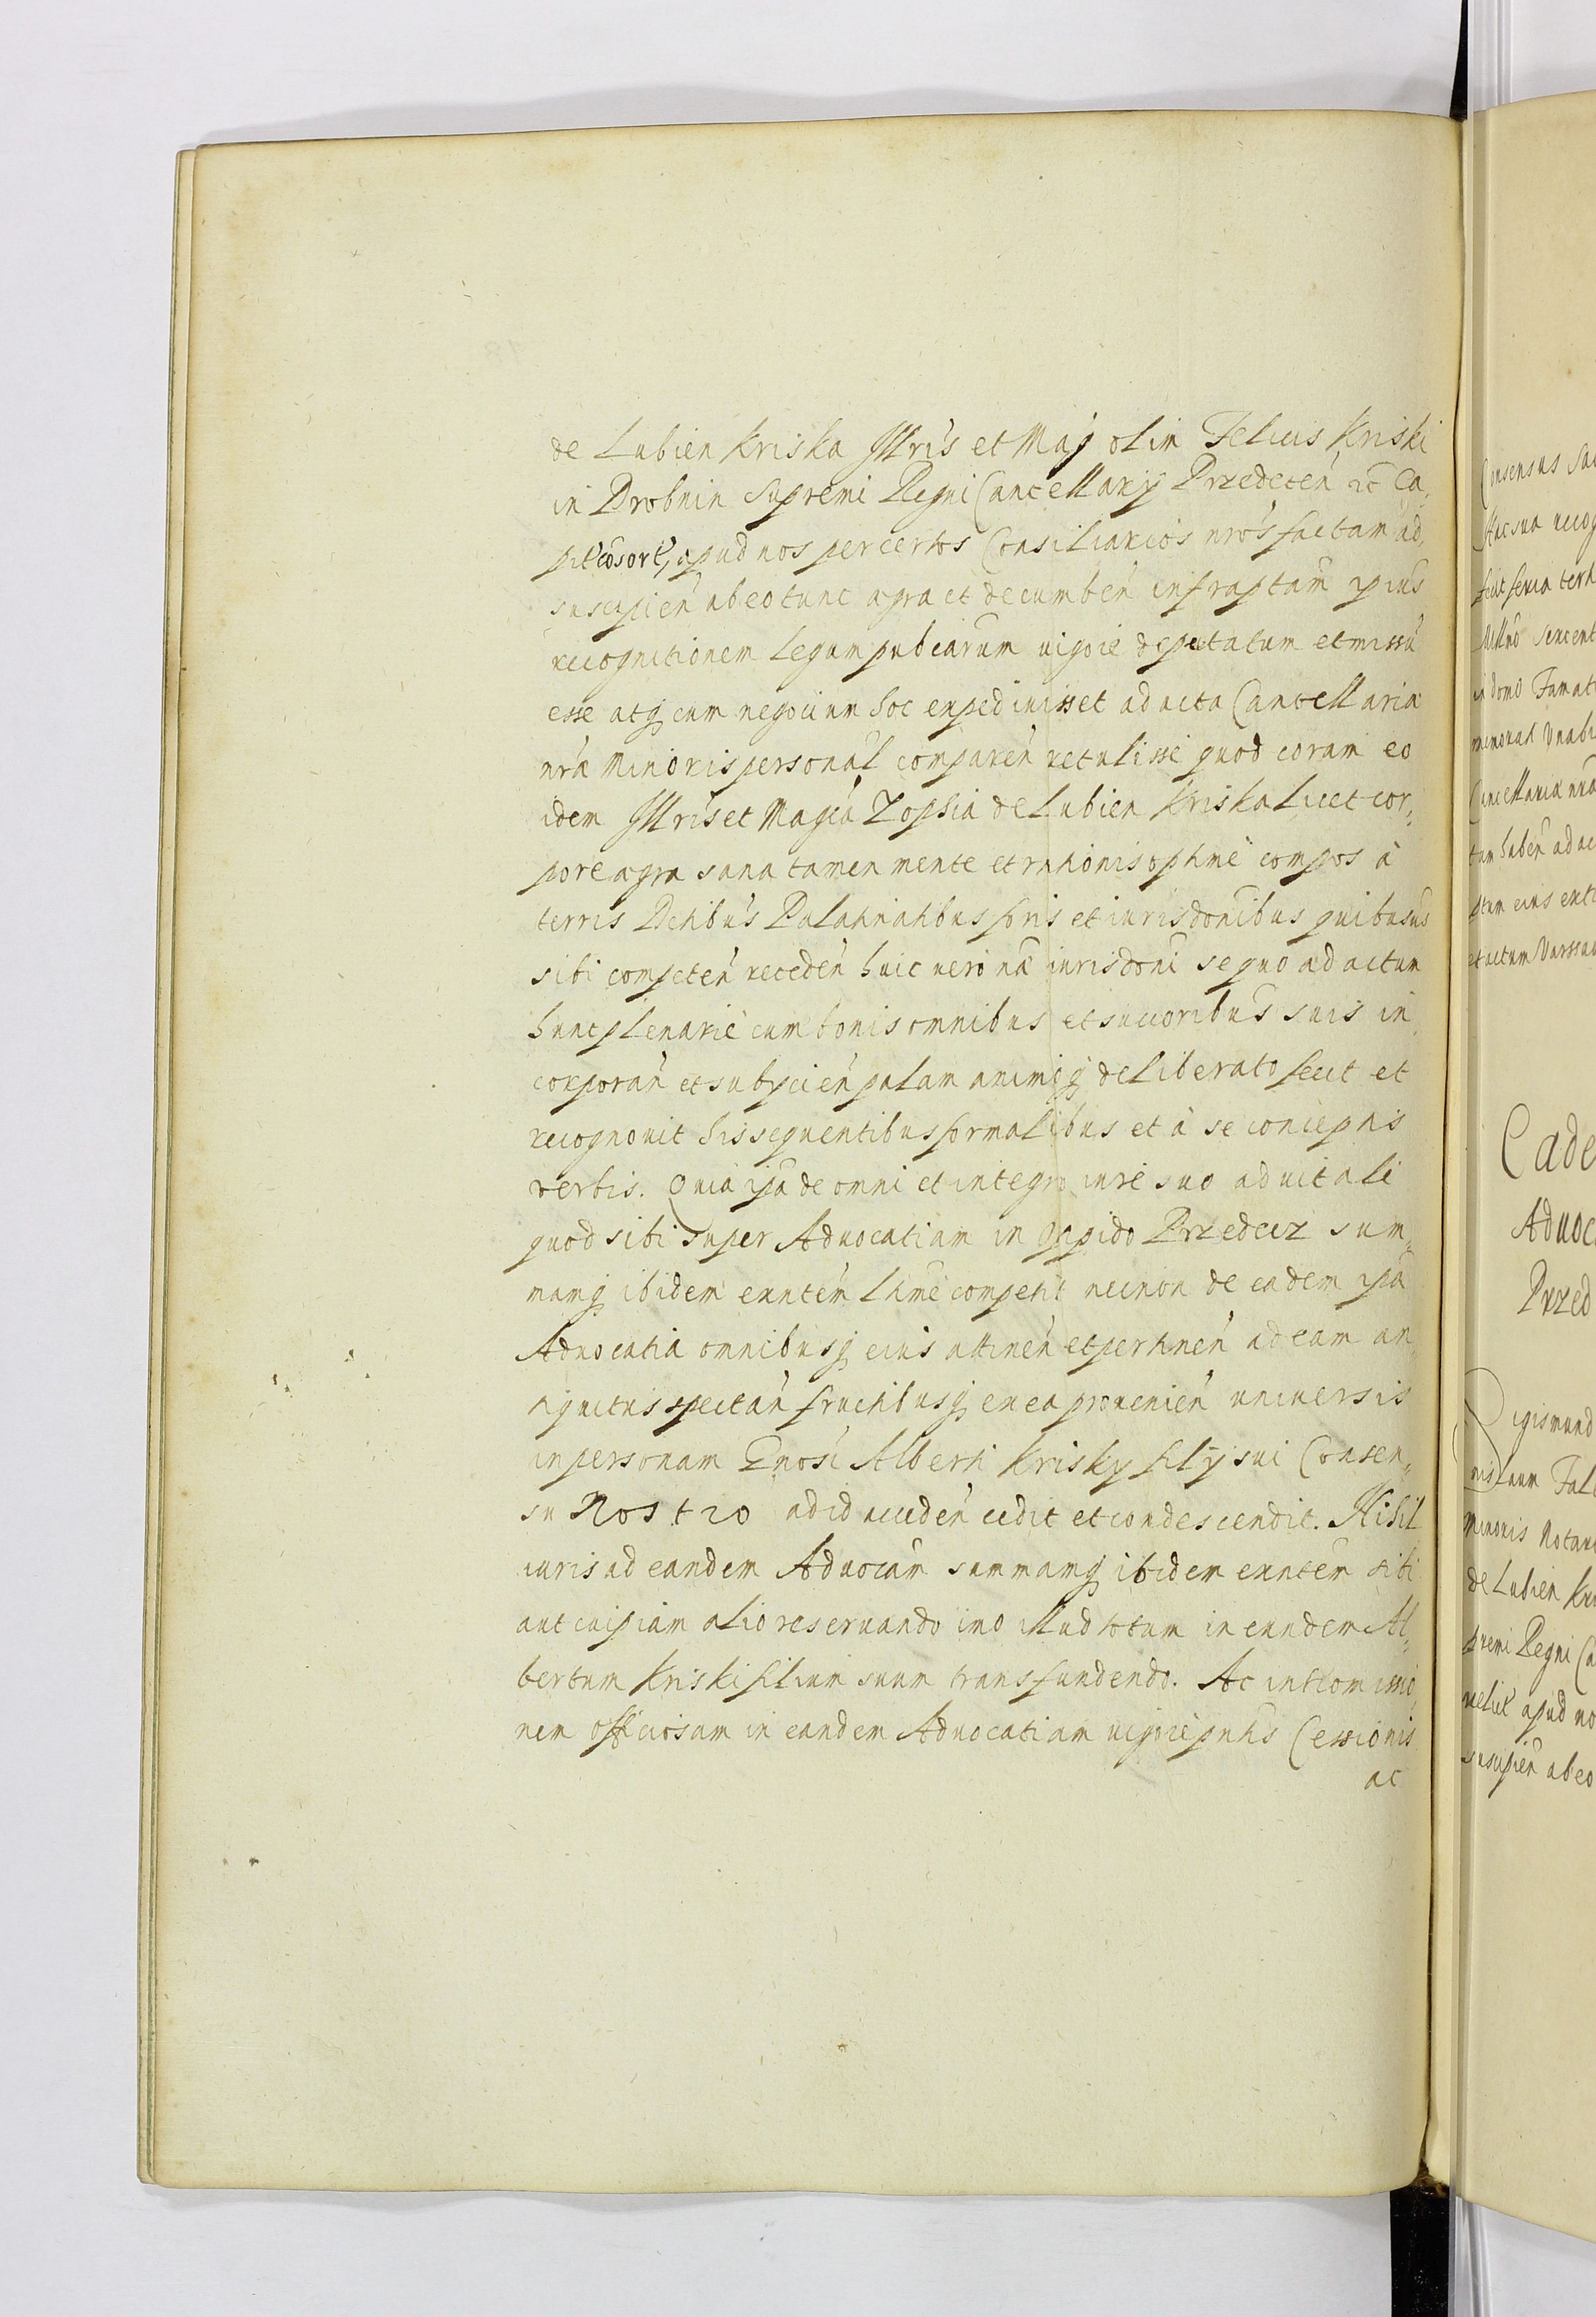 de Lubien Kriska Jllris et Mag olim Felicis Kriski
in Drobnin Supremi Regni Cancellarij Przedecen etc Ca,
pit cosort, apud nos per certos Consiliarios nros factam ad,
suscipien ab eo tunc agra et decumben infraptam ipius
recognitionem Legum publearum uigore deputatum et missu
esse atq cum negocium hoc expediuisset ad acta Cancellariæ
nræ Minoris personal comparen retulisse quod coram eo
idem Jllris et Magca Zophia de Lubien Kriska licet cor,,
pore ægra sana tamen mente et rationis optime compos à
terris Dctibus Palatinatibus foris et iurisdonibus quibusus
sibi competen receden huic uero næ iurisdoni se quo ad actum
hunc plenarie cum bonis omnibus et succoribus suis in
corporan et subycien palam animoq deliberato fecit et
recognouit his sequentibus formalibus et à se conceptis
verbis. Quia ipa de omni et integro iure suo aduitali
quod sibi super Aduocatiam in Oppido Przedecz sum,,
mamq ibidem exnten Ltime competit necnon de eadem ipa
Aduocatia omnibusq eius attinen et pertinen ad eam an
tiquitus spectan fructibusq ex ea prouenien uniuersis
in personam Gnosi Alberti Krisky filij sui Consen,,
su Nostro ad id acceden cedit et condescendit. Nihil
iuris ad eandem Aduocam summamq ibidem exntem sibi
aut cuipiam alio reseruando imo illud totum in eundem Al,,
bertum Kriski filium suum transfundendo. Ac intromissio
nem officiosam in eandem Aduocatiam uigore pntis Cessionis
ac
Consensus
fecit feria
in domo
Cancellaria
Cade
Aduoc
Przed
igismund
Minoris Nota
de Lubien
premi Regni Ca
apud no
suscipien ab eo